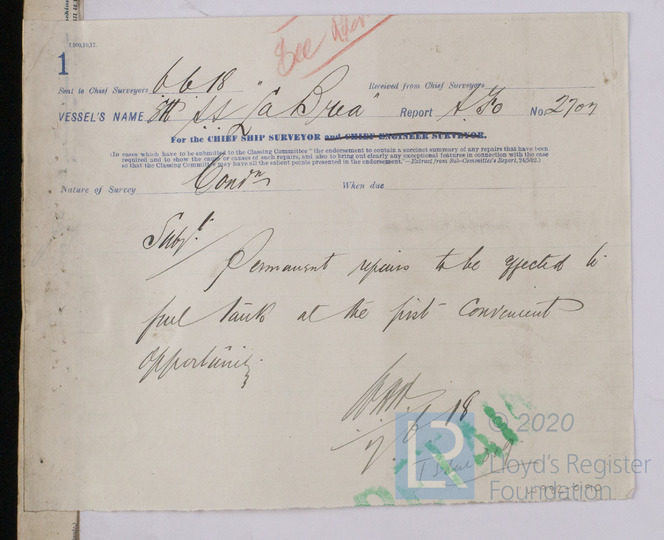 See Order
7,100,10,17.
1
Sent to Chief Surveyors 6 6 18 Received from Chief Surveyors
VESSEL'S NAME S.S. "La Brea" Report No. 2707
For the CHIEF SHIP SURVEYOR and CHIEF ENGINEER SURVEYOR.
(In cases which have to be submitted to the Classing Committee "the endorsement to contain a succinct summary of any repairs that have been
required and to show the cause or causes of such repairs, and also to bring out clearly any exceptional features in connection with the case
so that the Classing Committee may have all the salient points presented in the endorsement."—Extract from Sub-Committee's Report,
Nature of Survey Condn When due
Subj.t
Permanent repairs to be effected to
fuel tank at the first convenient
opportunity.
7/6/18
© 2020
Lloyd's Register
Foundation